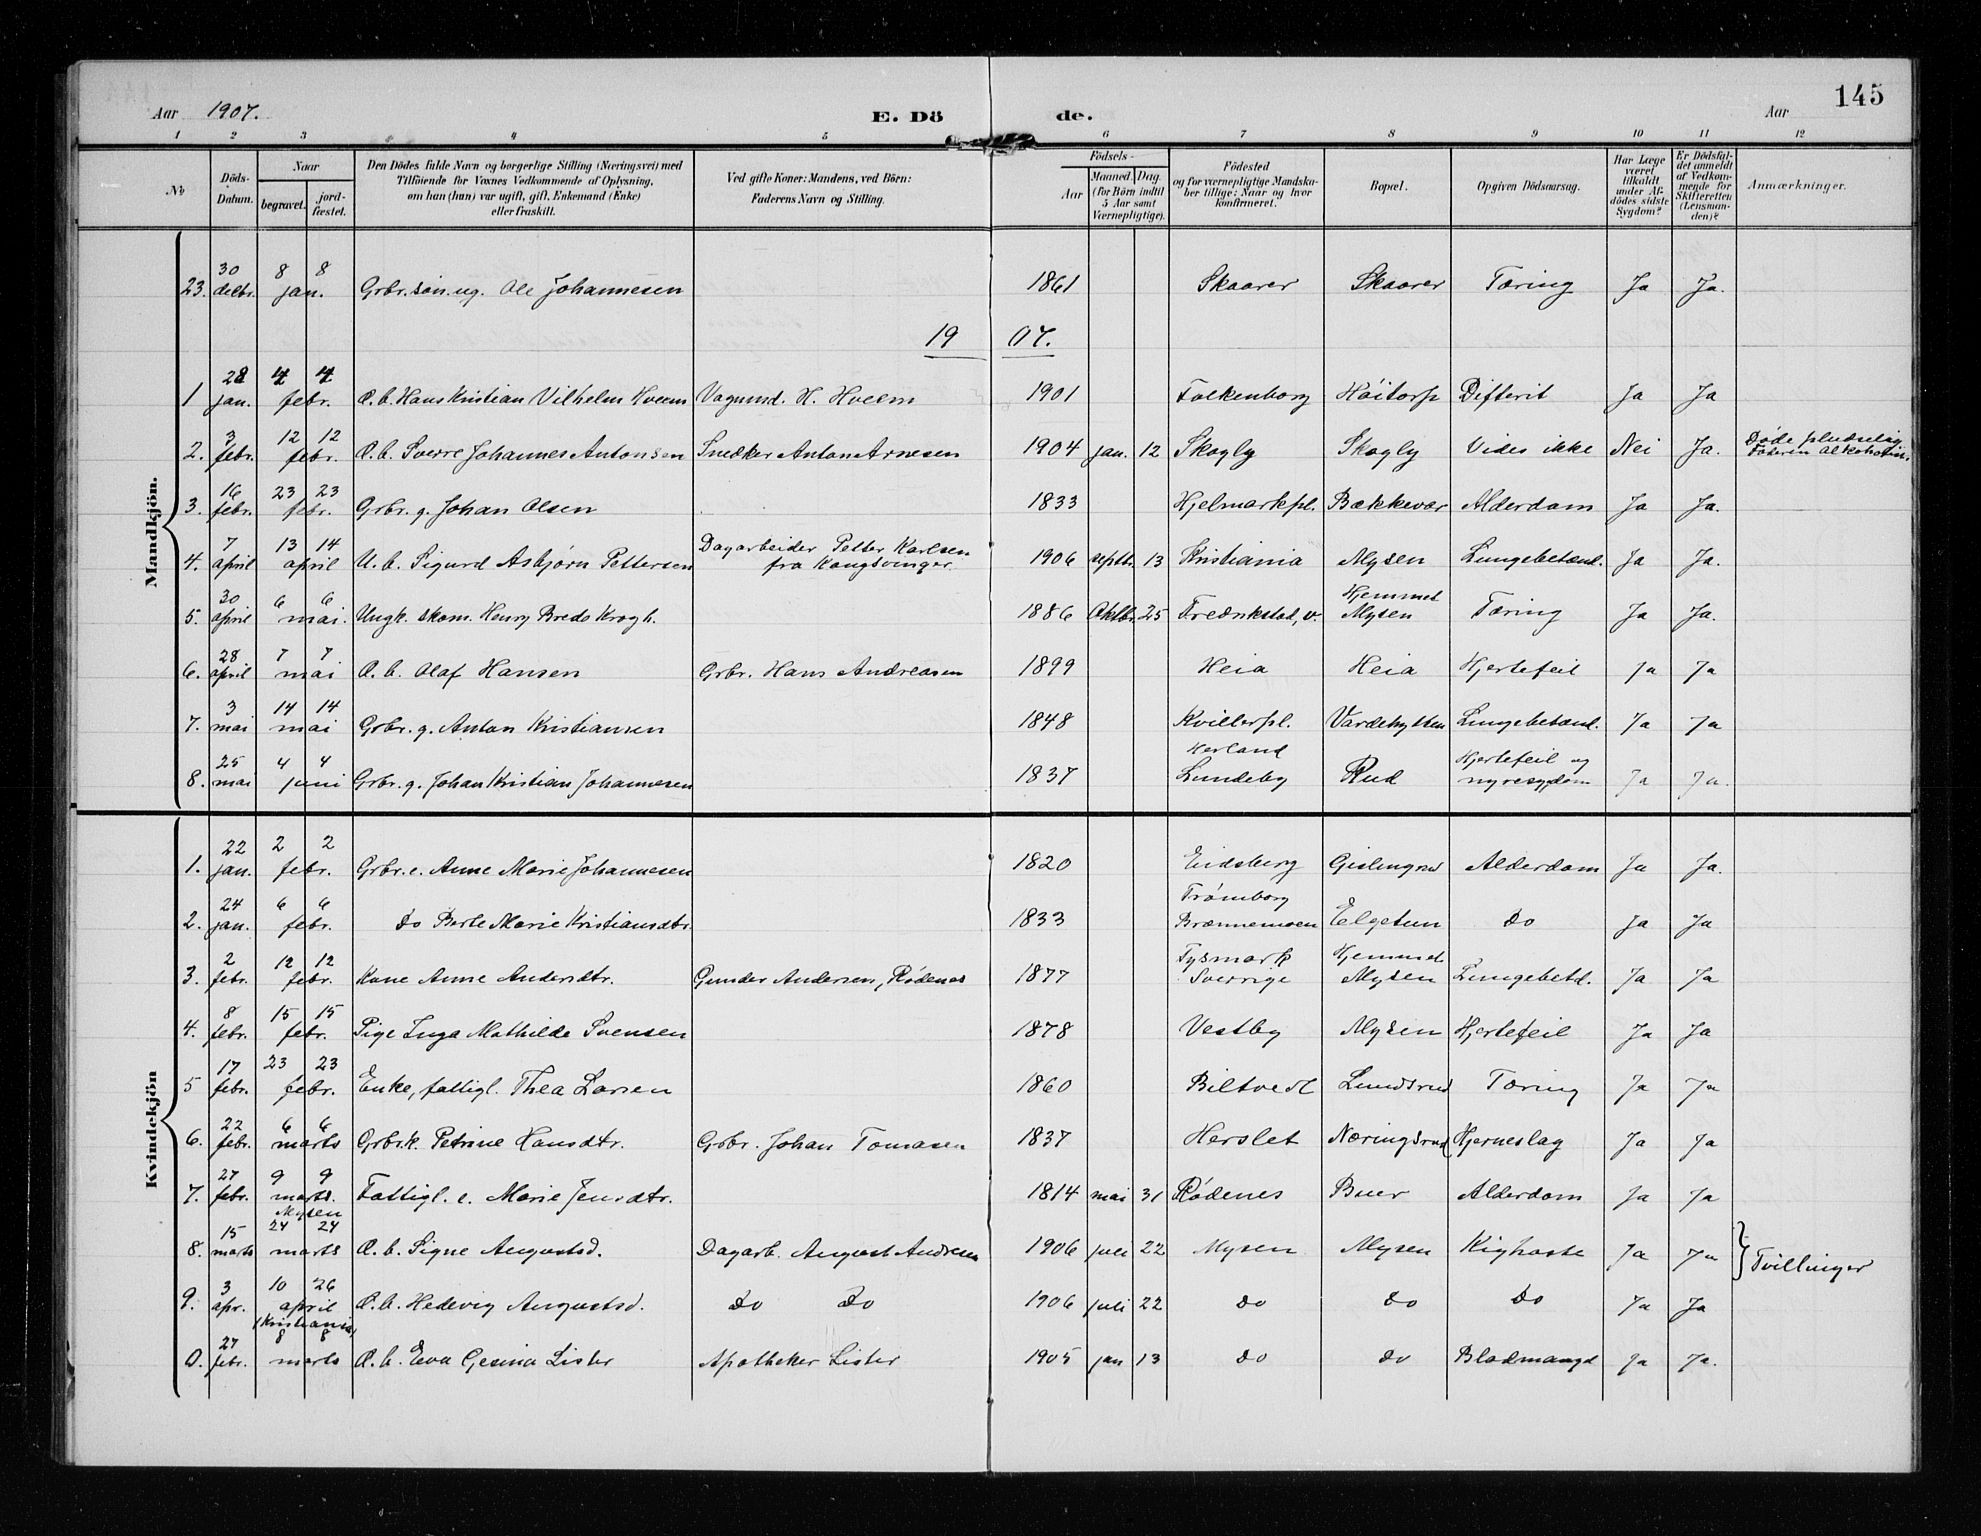 145
Aar 1907. E. Dö de. Aar
1 2 3 4 5 6 7 8 9 10 11 12
№
Döds-Datum.
Naar
begravet.
jord-fæstet.
Den Dödes fulde Navn og borgerlige Stilling (Næringsvei) med
Tilföiende for Voxnes Vedkommende af Oplysning,
om han (hun) var ugift, gift, Enkemand (Enke)
eller fraskilt.
Ved gifte Koner: Mandens, ved Börn:
Faderens Navn og Stilling.
Födsels-
Aar
Maaned. Dag.
(for Börn indtil
5 Aar samt
Værnepligtige).
Födested
og for værnepligtige Mandska-
ber tillige: Naar og hvor
konfirmeret.
Bopæl.
Opgiven Dödsaarsag.
Har Læge
været
tilkaldt
under Af-
dödes sidste
Sygdom?
Er Dödsfal-
det anmeldt
af Vedkom-
mende for
Skifteretten
(Lensman-
den)?
Anmærkninger.
Mandkjön.
23. 30 decbr. 8 8 jan. Grbr. søn. ug. Ole Johannesen 1861 Skaarer Skaarer Tæring Ja Ja.
19 07.
1 28 jan. 4 4 febr. Æ. b. Hans Kristian Vilhelm Hveem Vagnmd. H. Hveem 1901 Falkenborg Høitorp Difterit Ja Ja
2. 3 febr. 12 12 febr. Æ. b. Sverre Johannes Antonsen Snedker Anton Arnesen 1904 jan. 12 Skogly Skogly Vides ikke Nei Ja. Døde pludselig. Faderen alkoholist.
3. 16 febr. 23 23 febr. Grbr. g. Johan Olsen 1833 Hjelmarkpl. Bækkevar Alderdom Ja Ja.
4. 7 april 13 14 april U. b. Sigurd Asbjørn Pettersen Dagarbeider Petter Karlsen fra Kongsvinger. 1906 septbr. 13 Kristiania Mysen Lungebetænd. Ja Ja.
5. 30 april 6 6 mai. Ungk. skom. Henry Brede Krogh. 1886 Oktbr. 25 Fredrikstad, v. Hjemmet Mysen Tæring Ja Ja.
6. 28 april 7 7 mai Æ. b. Olaf Hansen Grbr. Hans Andreasen 1899 Heia Heia Hjertefeil Ja Ja
7. 3 mai 14 14 mai Grbr. g. Anton Kristiansen 1848 Kvillerpl. Vardehytten Lungebetænd. Ja Ja
8. 25 mai 4 4 juni Grbr. g. Johan Kristian Johannesen 1837 Herland Lundeby Rud Hjertefeil og nyresygdom Ja Ja.
Kvindekjön
1. 22 jan. 2 2 febr. Grbr. e. Anne Marie Johannesen 1820 Eidsberg Gislingrud Alderdom Ja Ja.
2. 24 jan. 6 6 febr. Do Berte Marie Kristiansdtr. 1833 Trømborg Brænnemoen Elgetun Do Ja Ja
3. 2 febr. 12 12 febr. Kone Anne Andersdtr. Gunder Andersen, Rødenes 1877 Fysmark Sverrige Hjemmet Mysen Lungebetd. Ja Ja
4. 8 febr. 15 15 febr. Pige Inga Mathilde Svensen 1878 Vestby Mysen Hjertefeil Ja Ja
5 17 febr. 23 23 febr. Enke, fattigl. Thea Larsen 1860 Biltvedt Lundsrud Tæring Ja Ja
6. 22 febr. 6 6 marts Grbr.k. Petrine Hansdtr. Grbr. Johan Tomasen 1837 Herslet Næringsrud Hjerneslag Ja Ja
7. 27 febr. 9 9 marts. Fattigl. e. Marie Jensdtr. 1814 mai 31 Rødenes Buer Alderdom Ja Ja
8. 15 marts Mysen 24 24 marts Æ. b. Signe Augustsd. Dagarb. August Andresen 1906 juli 22 Mysen Mysen Kighoste Ja Ja Tvillinger
9. 3 apr. 10 26 april (Kristiania) Æ. b. Hedevig Augustsd. Do Do 1906 juli 22 Do Do Do Ja Ja
0. 27 febr. 8 8 marts Æ. b. Eva Gesina Lister Apotheker Lister 1905 jan 13 Do Do Blodmangel Ja Ja.